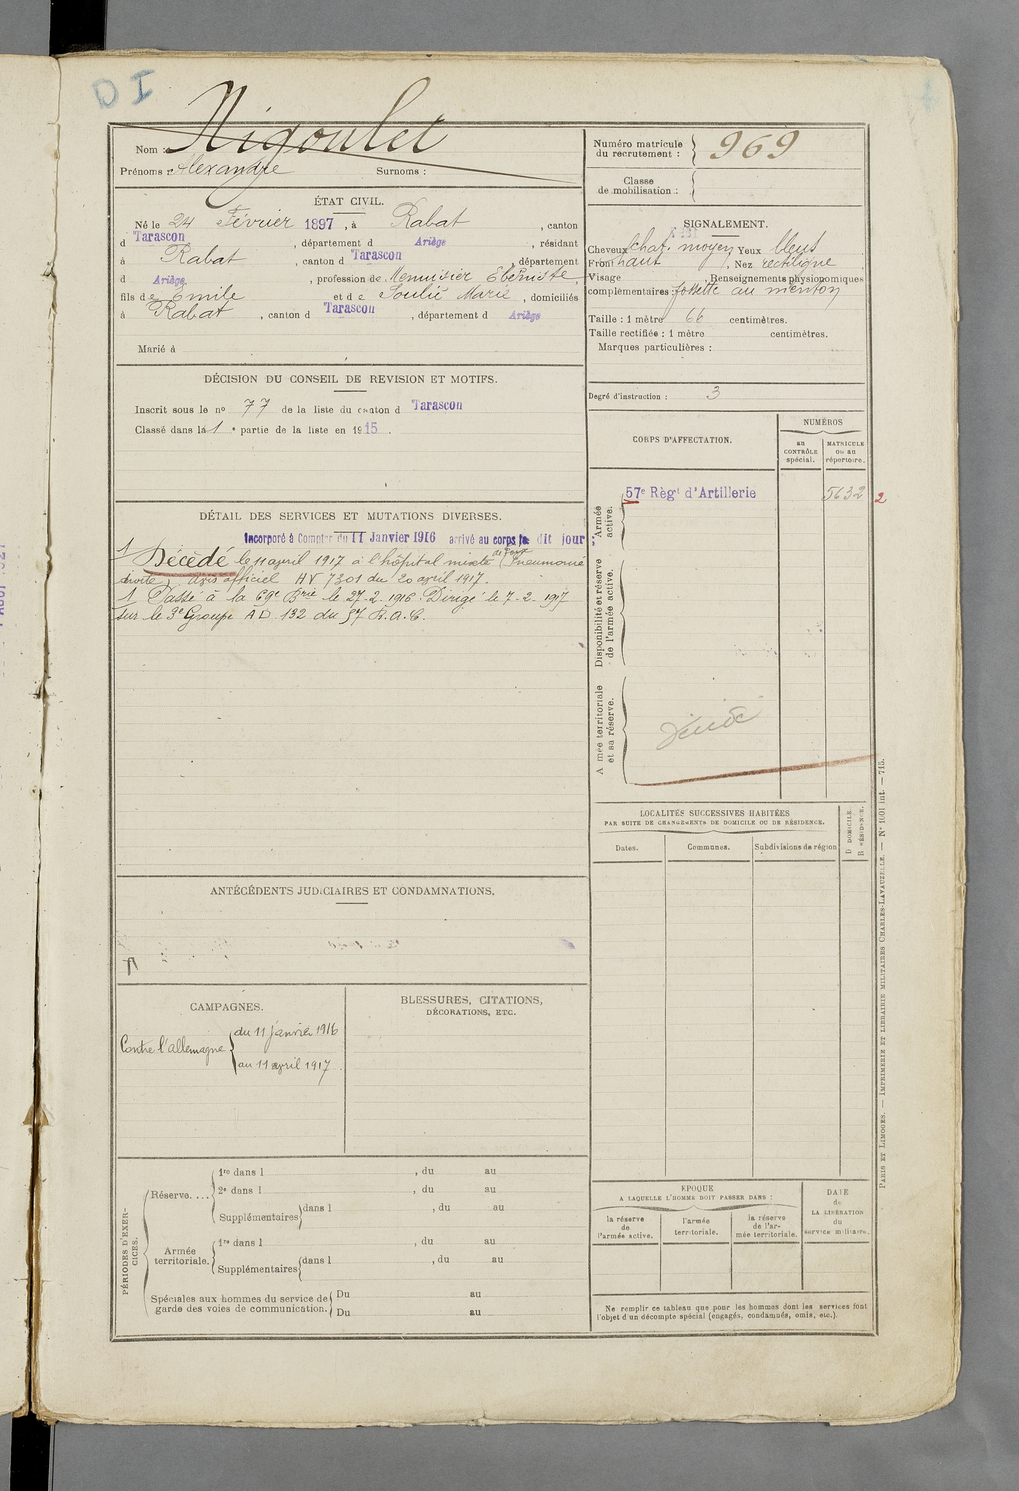 DI
Nom : Nigoulet
Prénoms : Alexandre Surnoms :
Numéro matricule du recrutement : 969
Classe de mobilisation :
ÉTAT CIVIL.
Né le 24 Février 1897, à Rabat, canton
d Tarascon, département d Ariège, résidant
à Rabat, canton d Tarascon, département
d Ariège, profession de Menuisier Ebeniste,
fils de Emile et de Soulié Marie, domiciliés
à Rabat, canton d Tarascon, département d Ariège
Marié à
SIGNALEMENT.
Cheveux chat. moyen Yeux bleus
Front haut, Nez rectiligne
Visage, Renseignements physionomiques
complémentaires : fossette au menton
Taille : 1 mètre 66 centimètres.
Taille rectifiée : 1 mètre centimètres.
Marques particulières :
Degré d'instruction : 3
DÉCISION DU CONSEIL DE REVISION ET MOTIFS.
Inscrit sous le no 77 de la liste du canton d Tarascon
Classé dans la 1e partie de la liste en 1915.
CORPS D'AFFECTATION.
NUMÉROS
au CONTRÔLE spécial.
MATRICULE ou au répertoire.
Armée active.
57e Règt d'Artillerie 5632 2
Disponibilité et réserve de l'armée active.
A mée territoriale et sa réserve.
DÉTAIL DES SERVICES ET MUTATIONS DIVERSES.
Incorporé à Compter du 11 Janvier 1916 arrivé au corps le dit jour :
1 Décédé le 11 avril 1917 à l'hôpital mixte de Foix (Pneumonie
droite) avis officiel AV 7301 du 20 avril 1917.
1 Passé à la 69e Brie le 27-2-1916 Dirigé le 7-2-1917
sur le 3e Groupe AD 132 du 57 R.A.C.
LOCALITÉS SUCCESSIVES HABITÉES
PAR SUITE DE CHANGEMENTS DE DOMICILE OU DE RÉSIDENCE.
Dates. Communes. Subdivisions de région
D DOMICILE.
R RÉSIDENCE.
ANTÉCÉDENTS JUDICIAIRES ET CONDAMNATIONS.
CAMPAGNES.
Contre l'allemagne
du 11 janvier 1916
au 11 avril 1917
BLESSURES, CITATIONS,
DÉCORATIONS, ETC.
PÉRIODES D'EXERCICES.
Réserve....
1re dans l, du au
2e dans l, du au
Supplémentaires dans l, du au
Armée territoriale.
1re dans l, du au
Supplémentaires dans l, du au
Spéciales aux hommes du service de garde des voies de communication.
Du au
Du au
ÉPOQUE
A LAQUELLE L'HOMME DOIT PASSER DANS :
la réserve de l'armée active.
l'armée territoriale.
la réserve de l'armée territoriale.
DATE
de
LA LIBÉRATION
du
service militaire.
Ne remplir ce tableau que pour les hommes dont les services font
l'objet d'un décompte spécial (engagés, condamnés, omis, etc.).
PARIS ET LIMOGES. — IMPRIMERIE ET LIBRAIRIE MILITAIRES CHARLES-LAVAUZELLE. — No 1001 int. — 715.